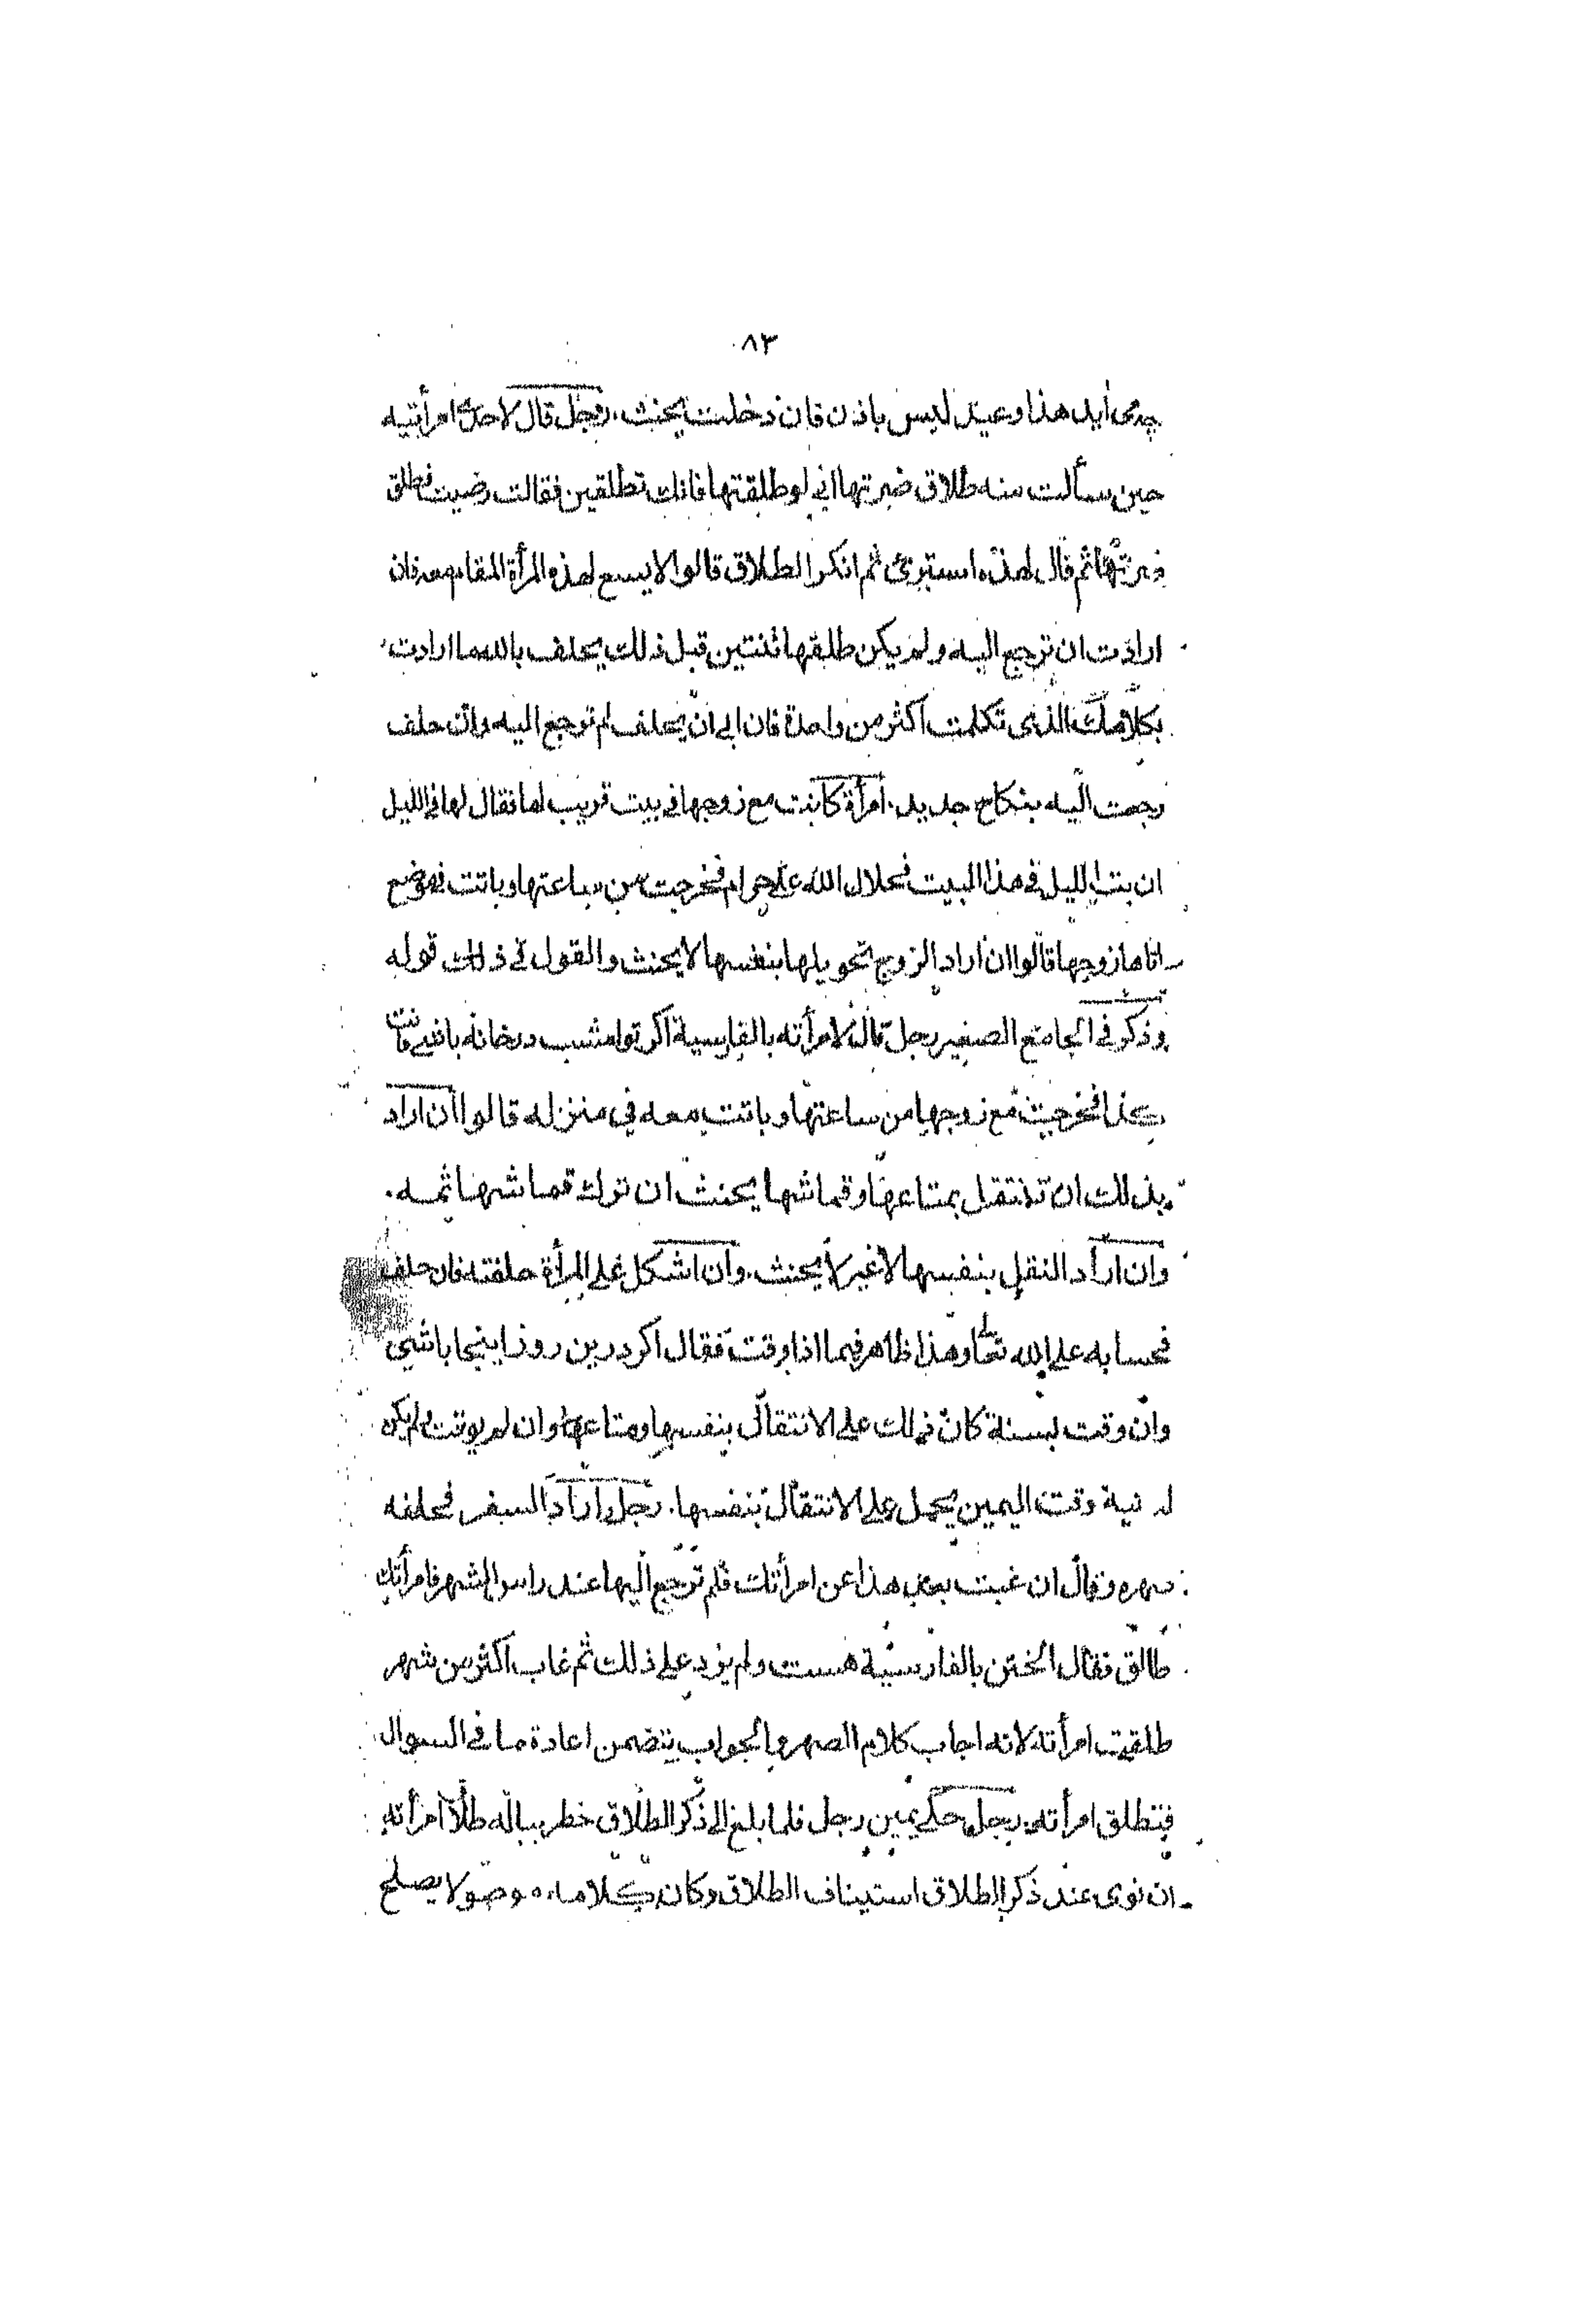 ٨٣
ايد هذا وعيد ليس باذن فان دخلت يحنث، رجل قال لاحدى امرأتيه
حين سألت منه طلاق ضرتها اني لو طلقتها فانك تطلقين فقالت رضيت فطلق
ضرتها ثم قال لهذه استبرئى ثم انكر الطلاق قالوا لا يسع لهذه المرأة المقام معه فان
ارادت ان ترجع اليه ولم يكن طلقها ثنتين قبل ذلك يحلف بالله ما ارادت
بكلامك الذى تكلمت اكثر من واحدة فان ابى ان يحلف لم ترجع اليه وان حلف
رجعت اليه بنكاح جديد. امرأة كانت مع زوجها في بيت قريب لها فقال لها في الليل
ان بت الليل في هذا البيت فحلال الله علي حرام فخرجت من ساعتها وباتت في موضع
اتاها زوجها قالوا ان اراد الزوج تحويلها بنفسها لا يحنث والقول في ذلك قوله
وذكر في الجامع الصغير رجل قال لامرأته بالفارسية اكر تو امشب درخانه باشي فانت
كذا فخرجت مع زوجها من ساعتها وباتت معه في منزله قالوا ان اراد
بذلك ان تنتقل بمتاعها وقماشها يحنث ان ترك قماشها ثمه.
وان اراد النقل بنفسها لا غير لا يحنث. وان اشكل على المرأة حلفته فان حلف
فحسابه على الله تعالى وهذا ظاهر فيما اذا وقت فقال اكر درين روز اينجا باشي
وان وقت بسنة كان ذلك على الانتقال بنفسها ومتاعها وان لم يوقت ولم يكن
له نية وقت اليمين يحمل على الانتقال بنفسها. رجل اراد السفر فحلفه
صهره وقال ان غبت بعد هذا عن امرأتك فلم ترجع اليها عند راس الشهر فامرأتك
طالق فقال الختن بالفارسية هست ولم يزد على ذلك ثم غاب اكثر من شهر
طلقت امرأته لانه اجاب كلام الصهر والجواب يتضمن اعادة ما في السوال
فتطلق امرأته. رجل حكى يمين رجل فلما بلغ الى ذكر الطلاق خطر بباله طلاق امرأته
ان نوى عند ذكر الطلاق استيناف الطلاق وكان كلامه موصولا يصلح